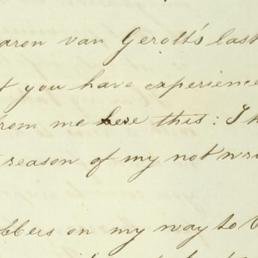 aron van Gerolt's last
t you have experience
from me here this: I h
reason of my not wri
bbers on my way to